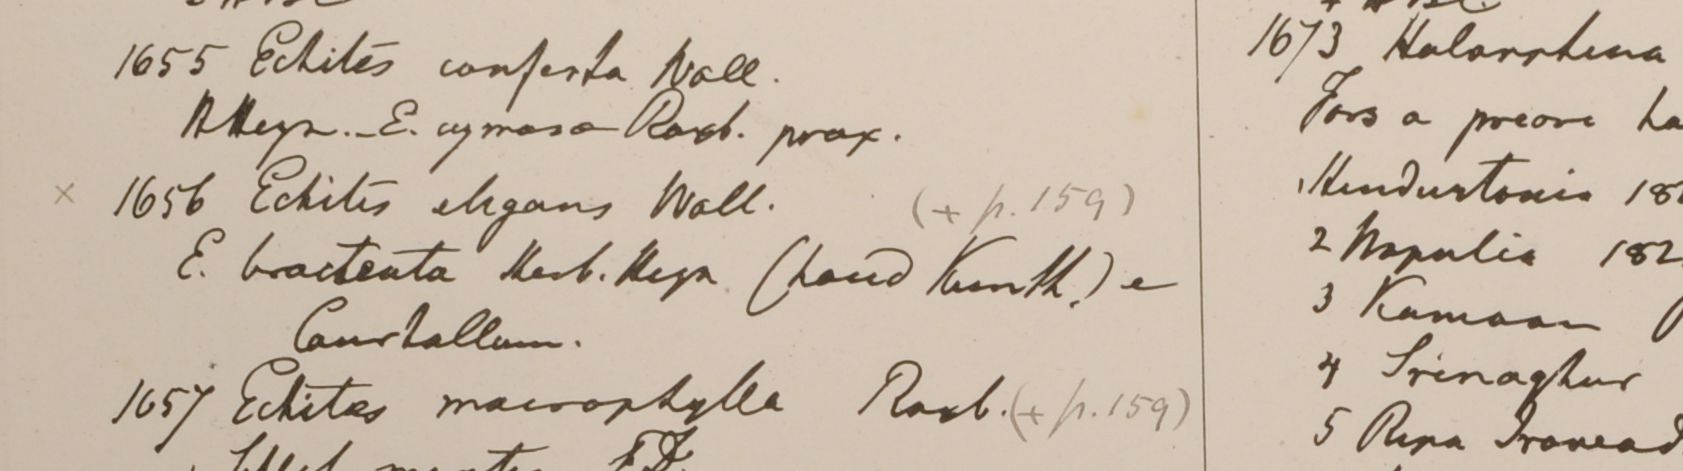 1655 Echites conferta Wall.
H Heyn. - E. cymosa Roxb. prox.
× 1656 Echites elegans Wall. (+ p. 159)
E. bracteata Herb. Heyn (haud Kunth.) e
Courtallum.
1657 Echites macrophylla Roxb. (+ p. 159)
montes
1673
Fors a priore
Hindustania
2 Napalia 182
3 Kamaon
4 Srinaghur
5 Ripa